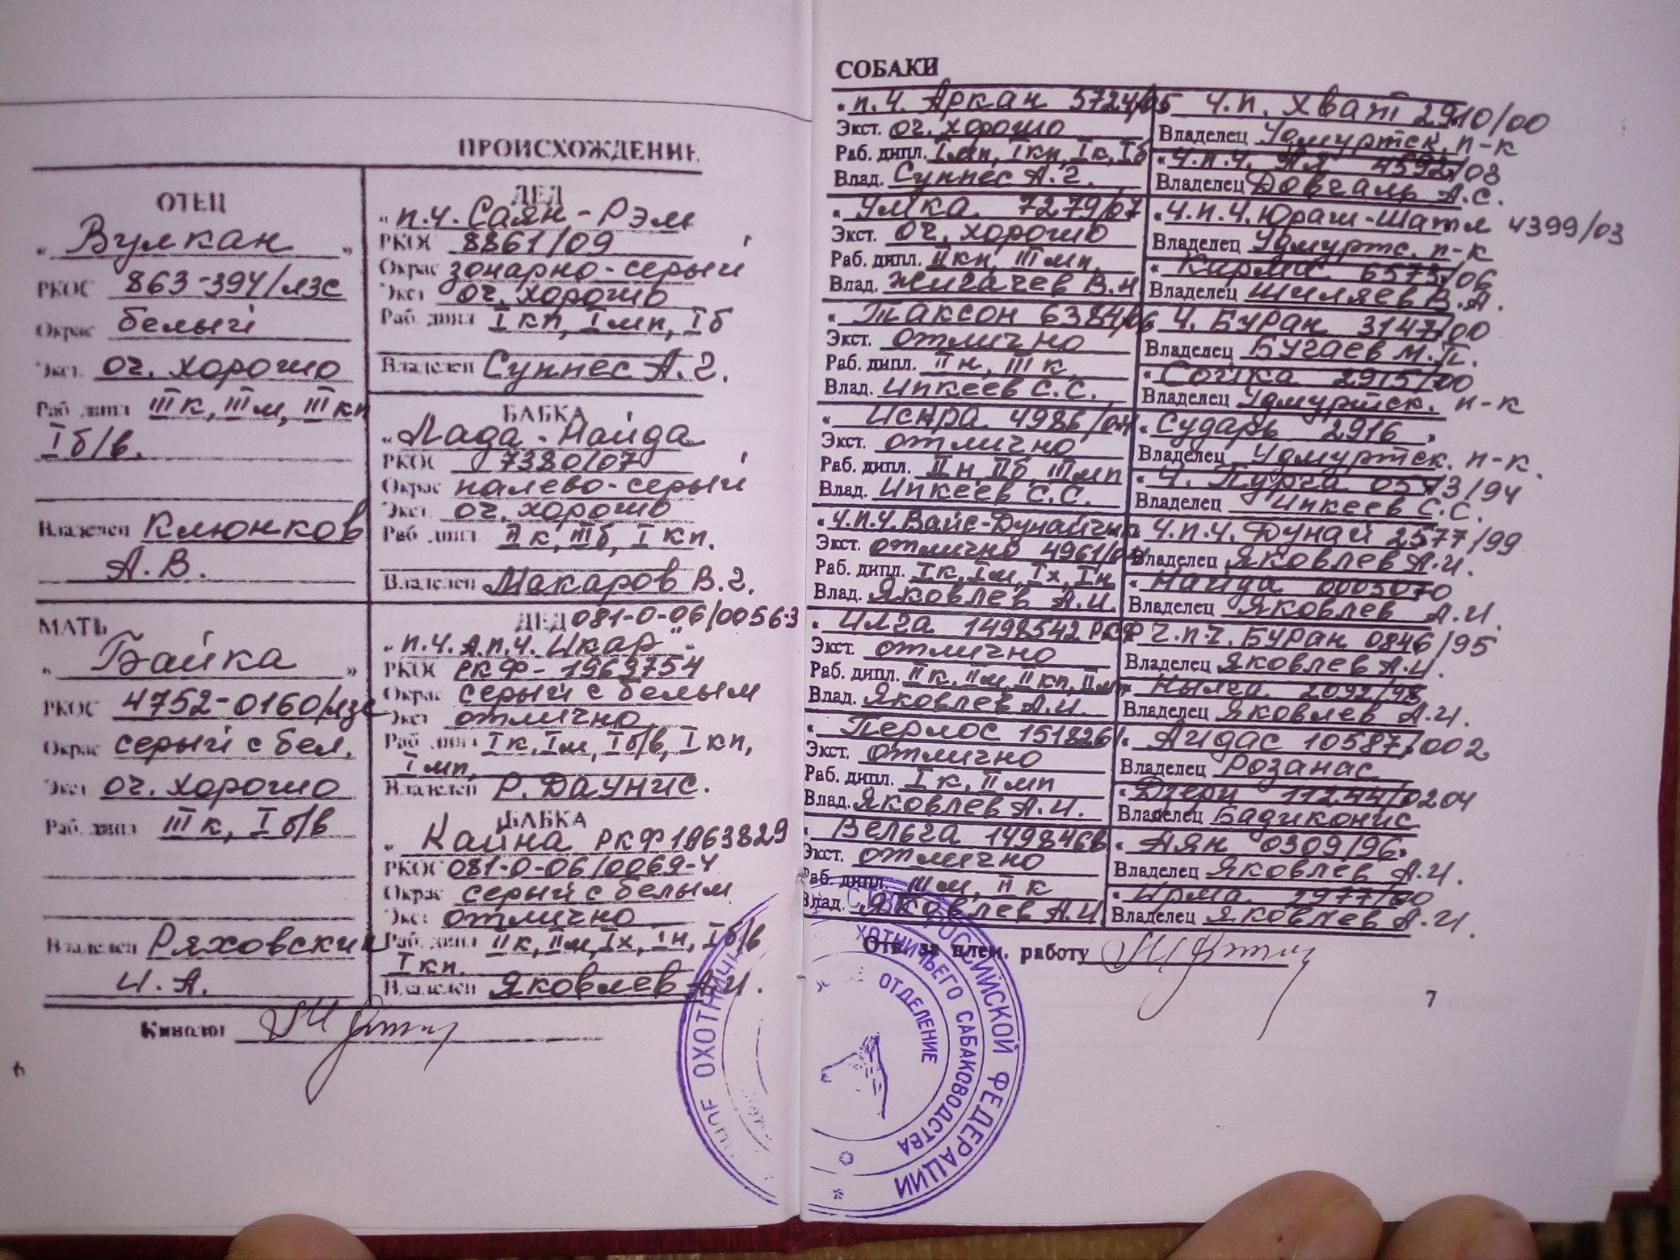 ПРОИСХОЖДЕНИЕ
ОТЕЦ
„ Вулкан „
РКОС 863-394/лзс
Окрас белый
Экст. оч. хорошо
Раб. дипл III к, III м, III кп
I б/в.
Владелец Клюнков
А.В.
МАТЬ
„ Байка „
РКОС 4752-0160/лзс
Окрас серый с бел.
Экст оч. хорошо
Раб. дипл III к, I б/в
Владелец Ряховский
И.А.
Кинолог
6
ДЕД
„ п.ч. Саян-Рэм
РКОС 8861/09
Окрас зонарно-серый
Экст оч. хорошо
Раб. дипл I кп, I мп, I б
Владелец Суннес А.Г.
БАБКА
„ Лада-Найда
РКОС 7380/07
Окрас палево-серый
Экст. оч. хорошо
Раб. дипл II к, III б, I кп.
Владелец Макаров В.Г.
ДЕД 081-0-06/0056-3
„ п.ч. А.п.ч. Икар „
РКОС РКФ-1963754
Окрас серый с белым
Экст отлично
Раб. дипл I к, I м, I б/в, I кп,
I мп,
Владелец Р. Даунис.
БАБКА
„ Кайна РКФ 1963829
РКОС 081-0-06/0069-4
Окрас серый с белым
Экст отлично
Раб. дипл II к, II м, I х, I н, I б/в
I кп.
Владелец Яковлев А.И.
СОБАКИ
„ п.ч. Аркан 5724/05
Экст. оч. хорошо
Раб. дипл. I мп, I кп, I к, I б
Влад. Суннес А.Г.
„ Умка 7279/07
Экст. оч. хорошо
Раб. дипл. II кп, III мп,
Влад. Жигачев В.Н
„ Таксон 6384/06
Экст. отлично
Раб. дипл. II н, III к,
Влад. Ипкеев С.С.
„ Искра 4986/04
Экст. отлично
Раб. дипл. II н, II б, III мп
Влад. Ипкеев С.С.
„ Ч.п.ч. Вайс-Дунайчик
Экст. отлично 4961/04
Раб. дипл. I к, I м, I х, I н
Влад. Яковлев А.И.
„ Илга 1498542 РКФ
Экст. отлично
Раб. дипл. II к, II м, II кп, II мп
Влад. Яковлев А.И.
„ Перлос 1518261
Экст. отлично
Раб. дипл. I к, II мп
Влад. Яковлев А.И.
„ Вельга 1498466
Экст. отлично
Раб. дипл. III м, II к
Влад. Яковлев А.И
Ч.п. Хват 2910/00
Владелец Удмуртск. п-к
„ Ч.п.ч. Ая 4592/03
Владелец Довгаль А.С.
„ Ч.п.ч. Юраш-Шатл 4399/03
Владелец Удмуртс. п-к
„ Карма 6573/06
Владелец Шиляев В.А.
„ Ч. Буран 3147/00
Владелец Бугаев М.П.
„ Сойка 2915/00
Владелец Удмуртск. п-к
„ Сударь 2916 „
Владелец Удмуртск. п-к.
„ Ч. Пурга 0573/94
Владелец Ипкеев С.С.
„ Ч.п.ч. Дунай 2577/99
Владелец Яковлев А.И.
„ Найда 0003070
Владелец Яковлев А.И.
Ч.п.ч. Буран 0846/95
Владелец Яковлев А.И.
„ Нылга 2092/98
Владелец Яковлев А.И.
„ Айдас 10587/002
Владелец Розанас
„ Дзери 11244/0204
Владелец Бадиконис
„ Аян 0309/96„
Владелец Яковлев А.И.
„ Ирма 2977/00
Владелец Яковлев А.И.
Отв. за плем. работу
7
ОХОТНИЧЬЕ
РОССИЙСКОЙ ФЕДЕРАЦИИ
ХОТНИЧЬЕГО САБАКОВОДСТВА
ОТДЕЛЕНИЕ